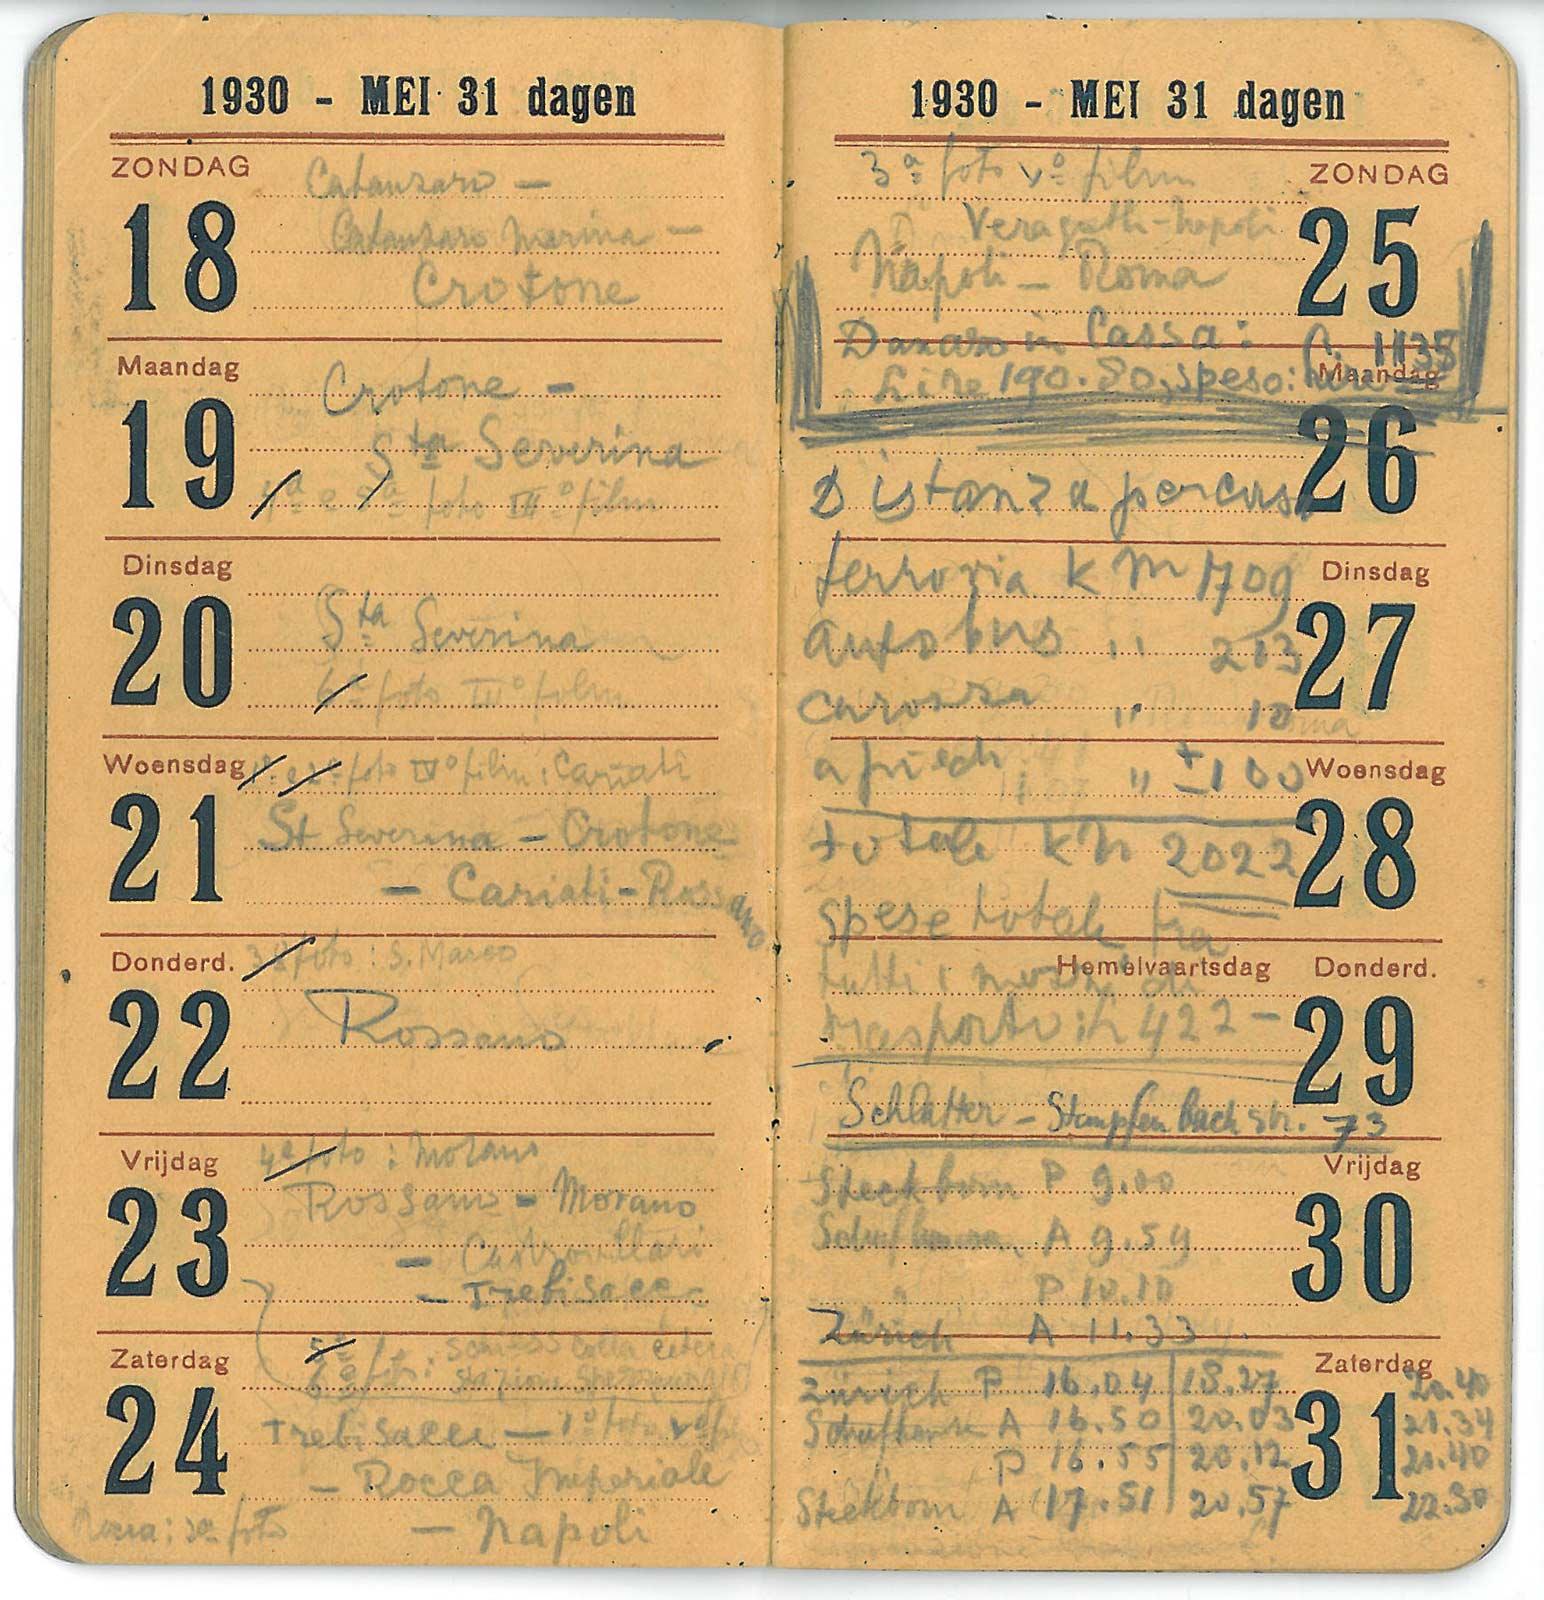 1930 - MEI 31 dagen
ZONDAG
18
Catanzaro —
Catanzaro Marina —
Crotone
Maandag
19
Crotone —
Sta Severina
4a e 5a foto III° film
Dinsdag
20
Sta Severina
6a foto III° film
Woensdag
21
1a e 2a foto IV° film: Cariati
St Severina — Crotone
— Cariati - Rossano
Donderd.
22
3a foto: S. Marco
Rossano
Vrijdag
23
4a foto: Morano
Rossano — Morano
— Castrovillari
— Trebisacce
Zaterdag
24
5a
6a foto: stazione
Trebisacce — 1a foto V° f
— Rocca Imperiale
— Napoli
Rocca: 2a foto
1930 - MEI 31 dagen
ZONDAG
25
3a foto V° film
Veraguth - Napoli
Napoli — Roma
Danaro in Cassa: 1135
Lire 190.80, speso:
Maandag
26
Distanza percorsa
Dinsdag
27
ferrovia km 1709
autobus " 213
carossa " 10
Woensdag
28
a piedi " ± 100
totale km 2022
spese totale fra
Hemelvaartsdag Donderd.
29
tutti i mezzi di
trasporto: L 422 —
Schlatter — Stampfenbachstr. 73
Vrijdag
30
Steckborn P 9.00
Schaffhausen A 9.59
" P 10.10
Zürich A 11.33
Zaterdag
31
Zürich P 16.04 18.27 20.40
Schaffhausen A 16.50 20.03 21.34
P 16.55 20.12 21.40
Steckborn A 17.51 20.57 22.30